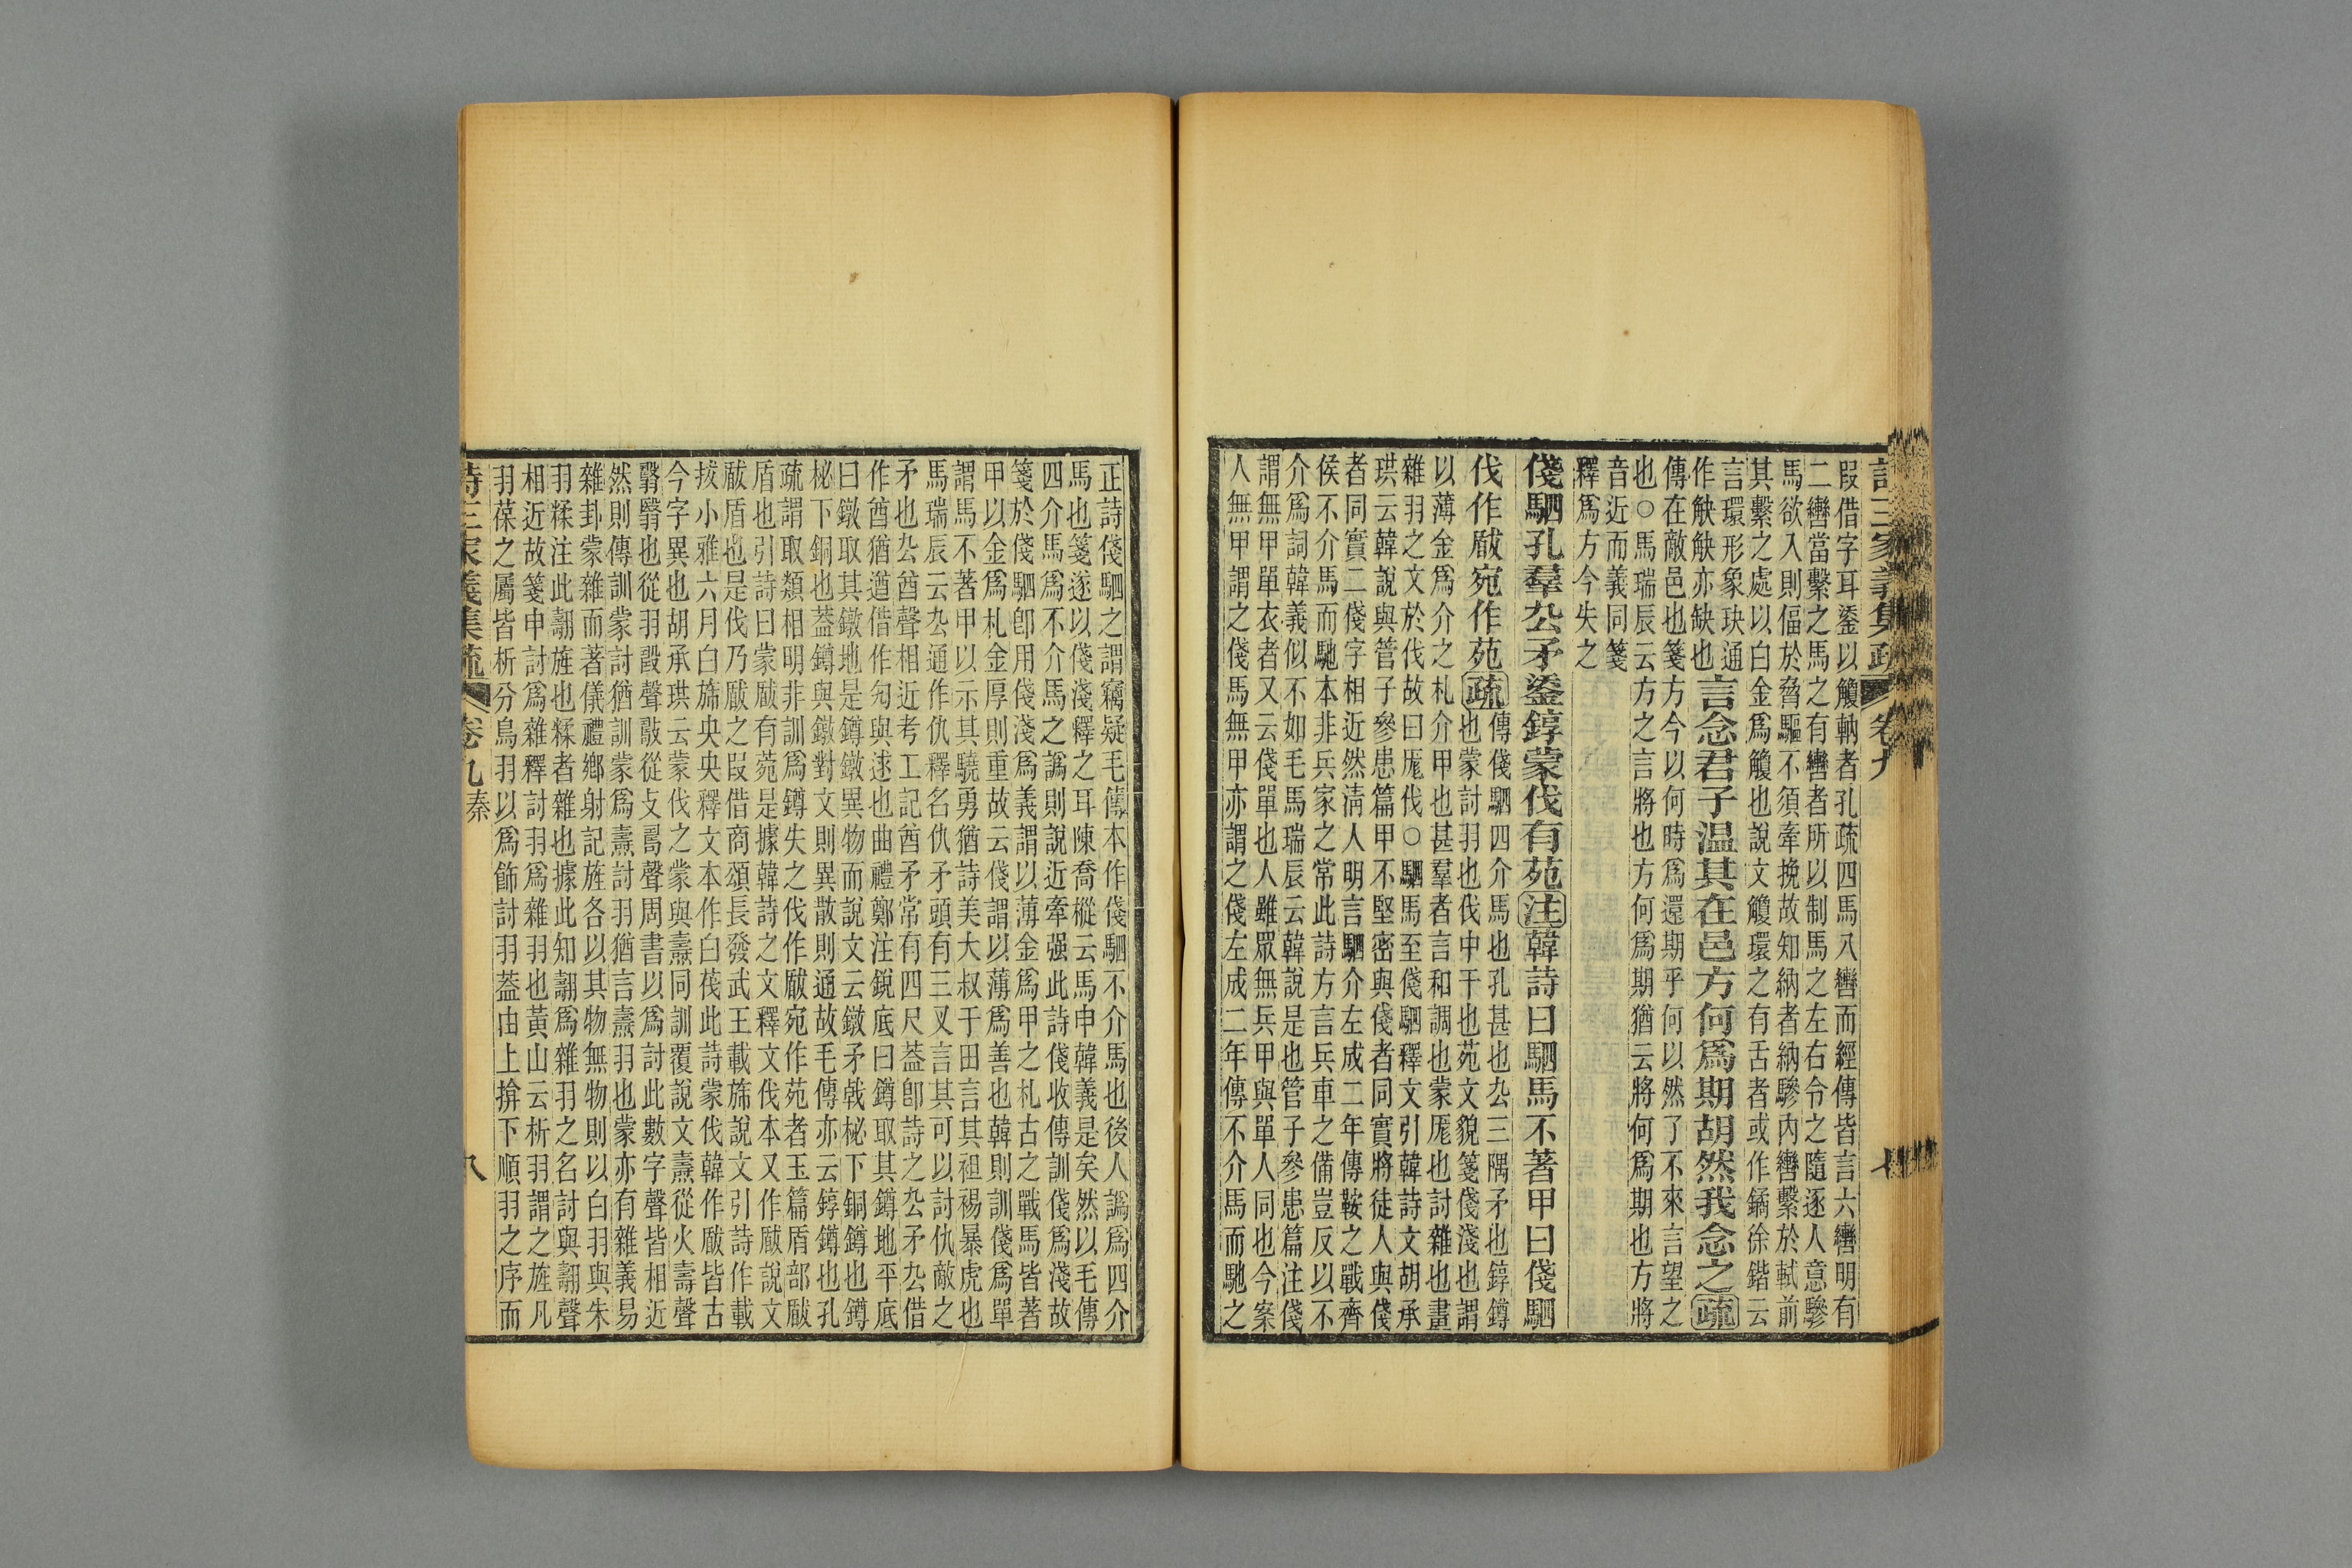 詩三家義集疏 卷九 七
叚借字耳鋈以觼軜者孔疏四馬八轡而經傳皆言六轡明有
二轡當繫之馬之有轡者所以制馬之左右令之隨逐人意驂
馬欲入則偪於脅驅不須牽挽故知納者納驂內轡繫於軾前
其繫之處以白金爲觼也說文觼環之有舌者或作鐍徐鍇云
言環形象玦通
作觖觖亦缺也
言念君子温其在邑方何爲期胡然我念之疏
傳在敵邑也箋方今以何時爲還期乎何以然了不來言望之
也○馬瑞辰云方之言將也方何爲期猶云將何爲期也方將
音近而義同箋
釋爲方今失之
俴駟孔羣厹矛鋈錞蒙伐有苑注韓詩曰駟馬不著甲曰俴駟
伐作瞂宛作苑疏
傳俴駟四介馬也孔甚也厹三隅矛也錞鐏
也蒙討羽也伐中干也苑文貌箋俴淺也謂
以薄金爲介之札介甲也甚羣者言和調也蒙厖也討雜也畫
雜羽之文於伐故曰厖伐○駟馬至俴駟釋文引韓詩文胡承
珙云韓說與管子參患篇甲不堅密與俴者同實將徒人與俴
者同實二俴字相近然淸人明言駟介左成二年傳鞍之戰齊
侯不介馬而馳本非兵家之常此詩方言兵車之備豈反以不
介爲詞韓義似不如毛馬瑞辰云韓說是也管子參患篇注俴
謂無甲單衣者又云俴單也人雖眾無兵甲與單人同也今案
人無甲謂之俴馬無甲亦謂之俴左成二年傳不介馬而馳之
正詩俴駟之謂竊疑毛傳本作俴駟不介馬也後人譌爲四介
馬也箋遂以俴淺釋之耳陳喬樅云馬申韓義是矣然以毛傳
四介馬爲不介馬之譌則說近牽强此詩俴收傳訓俴爲淺故
箋於俴駟卽用俴淺爲義謂以薄金爲甲之札古之戰馬皆著
甲以金爲札金厚則重故云俴謂以薄爲善也韓則訓俴爲單
謂馬不著甲以示其驍勇猶詩美大叔于田言其袒裼暴虎也
馬瑞辰云厹通作仇釋名仇矛頭有三叉言其可以討仇敵之
矛也厹酋聲相近考工記酋矛常有四尺葢卽詩之厹矛厹借
作酋猶遒借作訄與逑也曲禮鄭注銳底曰鐏取其鐏地平底
曰鐓取其鐓地是鐏鐓異物而說文云鐓矛戟柲下銅鐏也鐏
柲下銅也葢鐏與鐓對文則異散則通故毛傳亦云錞鐏也孔
疏謂取類相明非訓爲鐏失之伐作瞂宛作苑者玉篇盾部瞂
盾也引詩曰蒙瞂有菀是據韓詩之文釋文伐本又作瞂說文
瞂盾也是伐乃瞂之叚借商頌長發武王載旆說文引詩作載
拔小雅六月白旆央央釋文本作白茷此詩蒙伐韓作瞂皆古
今字異也胡承珙云蒙伐之蒙與燾同訓覆說文燾從火壽聲
翳翳也從羽殹聲敽從攴喬聲周書以爲討此數字聲皆相近
然則傳訓蒙討猶訓蒙爲燾討羽猶言燾羽也蒙亦有雜義易
雜卦蒙雜而著儀禮鄉射記旌各以其物無物則以白羽與朱
羽糅注此翿旌也糅者雜也據此知翿爲雜羽之名討與翿聲
相近故箋申討爲雜釋討羽爲雜羽也黃山云析羽謂之旌凡
羽葆之屬皆析分鳥羽以爲飾討羽葢由上揜下順羽之序而
詩三家義集疏 卷九秦 八